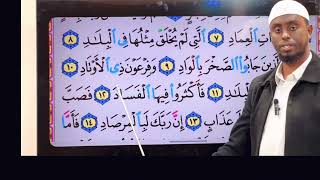 تِ الْعِمَادِ ٧ الَّتِي لَمْ يُخْلَقْ مِثْلُهَا فِي الْبِلَادِ ٨
ينَ جَابُوا الصَّخْرَ بِالْوَادِ ٩ وَفِرْعَوْنَ ذِي الْأَوْتَادِ ١٠
لْبِلَادِ ١١ فَأَكْثَرُوا فِيهَا الْفَسَادَ ١٢ فَصَبَّ
عَذَابٍ ١٣ إِنَّ رَبَّكَ لَبِالْمِرْصَادِ ١٤ فَأَمَّا